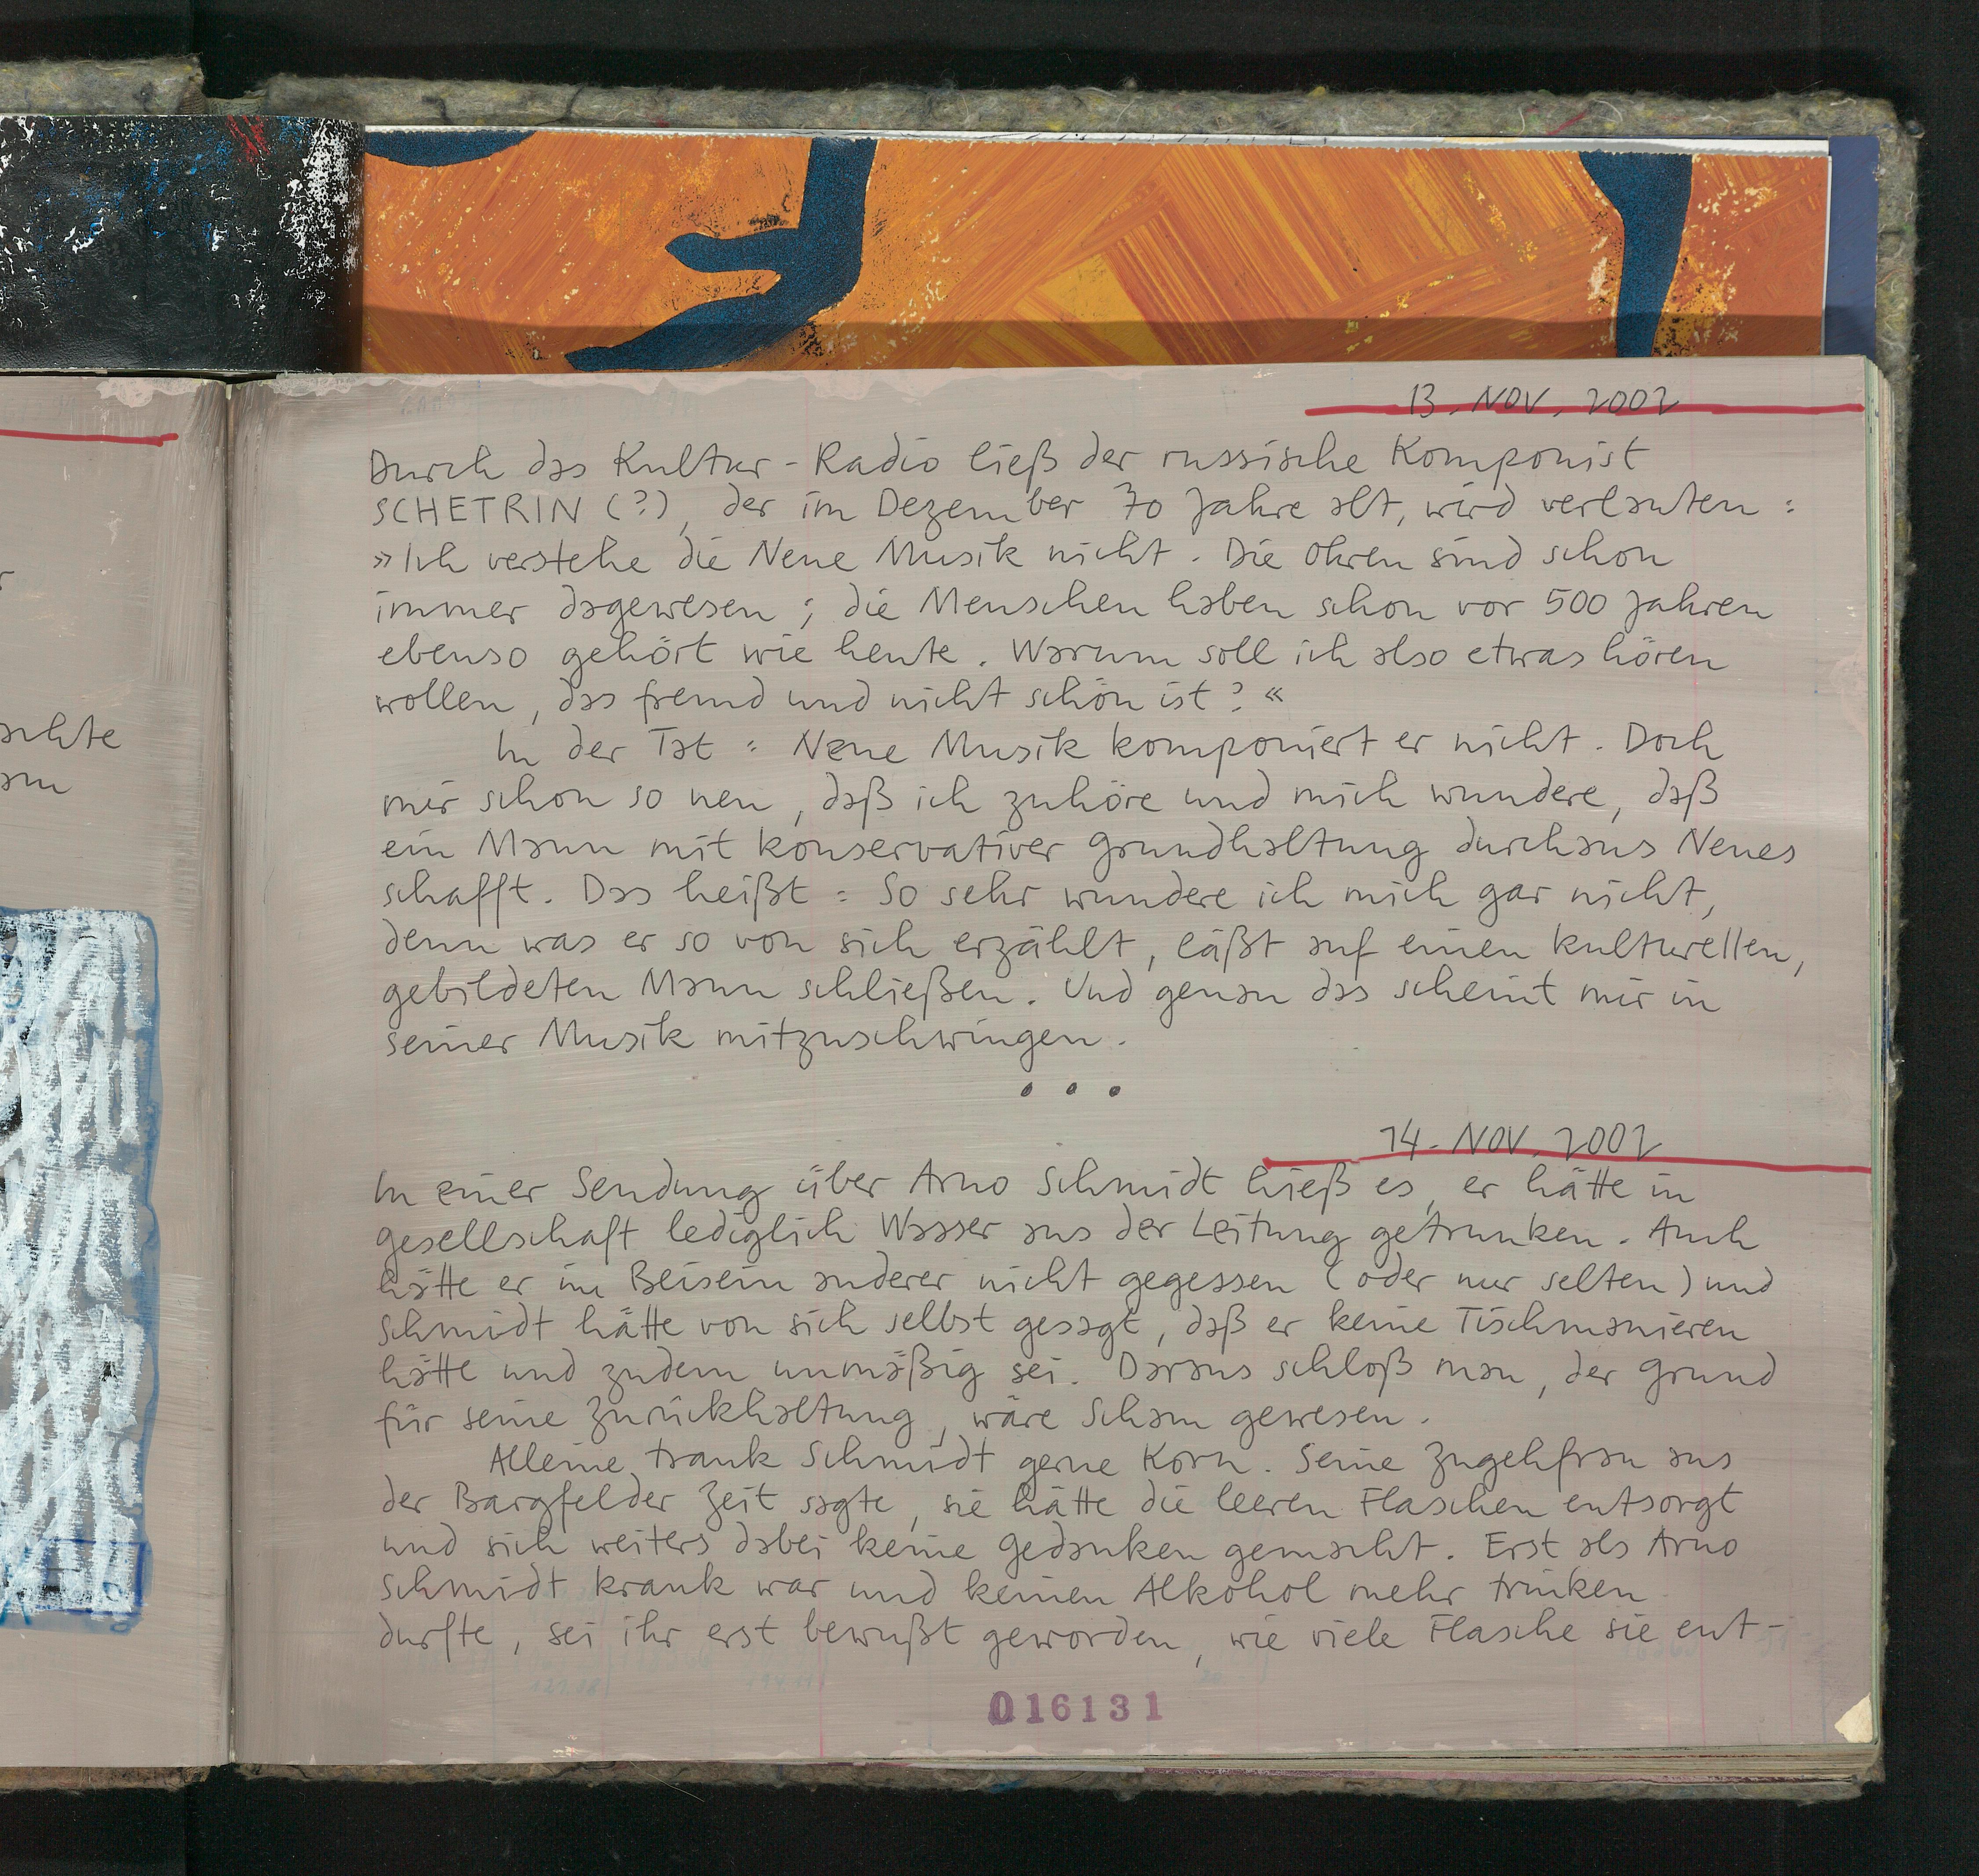 13. NOV. 2002
Durch das Kultur-Radio ließ der russische Komponist
SCHETRIN (?), der im Dezember 70 Jahre alt, wird verlauten:
»Ich verstehe die Neue Musik nicht. Die Ohren sind schon
immer dagewesen; die Menschen haben schon vor 500 Jahren
ebenso gehört wie heute. Warum soll ich also etwas hören
wollen, das fremd und nicht schön ist?«
In der Tat: Neue Musik komponiert er nicht. Doch
mir schon so neu, daß ich zuhöre und mich wundere, daß
ein Mann mit konservativer Grundhaltung durchaus Neues
schafft. Das heißt: So sehr wundere ich mich gar nicht,
denn was er so von sich erzählt, läßt auf einen kulturellen,
gebildeten Mann schließen. Und genau das scheint mir in
seiner Musik mitzuschwingen.
...
14. NOV. 2002
In einer Sendung über Arno Schmidt hieß es, er hätte in
Gesellschaft lediglich Wasser aus der Leitung getrunken. Auch
hätte er im Beisein anderer nicht gegessen (oder nur selten) und
Schmidt hätte von sich selbst gesagt, daß er keine Tischmanieren
hätte und zudem unmäßig sei. Daraus schloß man, der Grund
für seine Zurückhaltung, wäre Scham gewesen.
Alleine trank Schmidt gerne Korn. Seine Zugehfrau aus
der Bargfelder Zeit sagte, sie hätte die leeren Flaschen entsorgt
und sich weiters dabei keine Gedanken gemacht. Erst als Arno
Schmidt krank war und keinen Alkohol mehr trinken
durfte, sei ihr erst bewußt geworden, wie viele Flasche sie ent-
016131